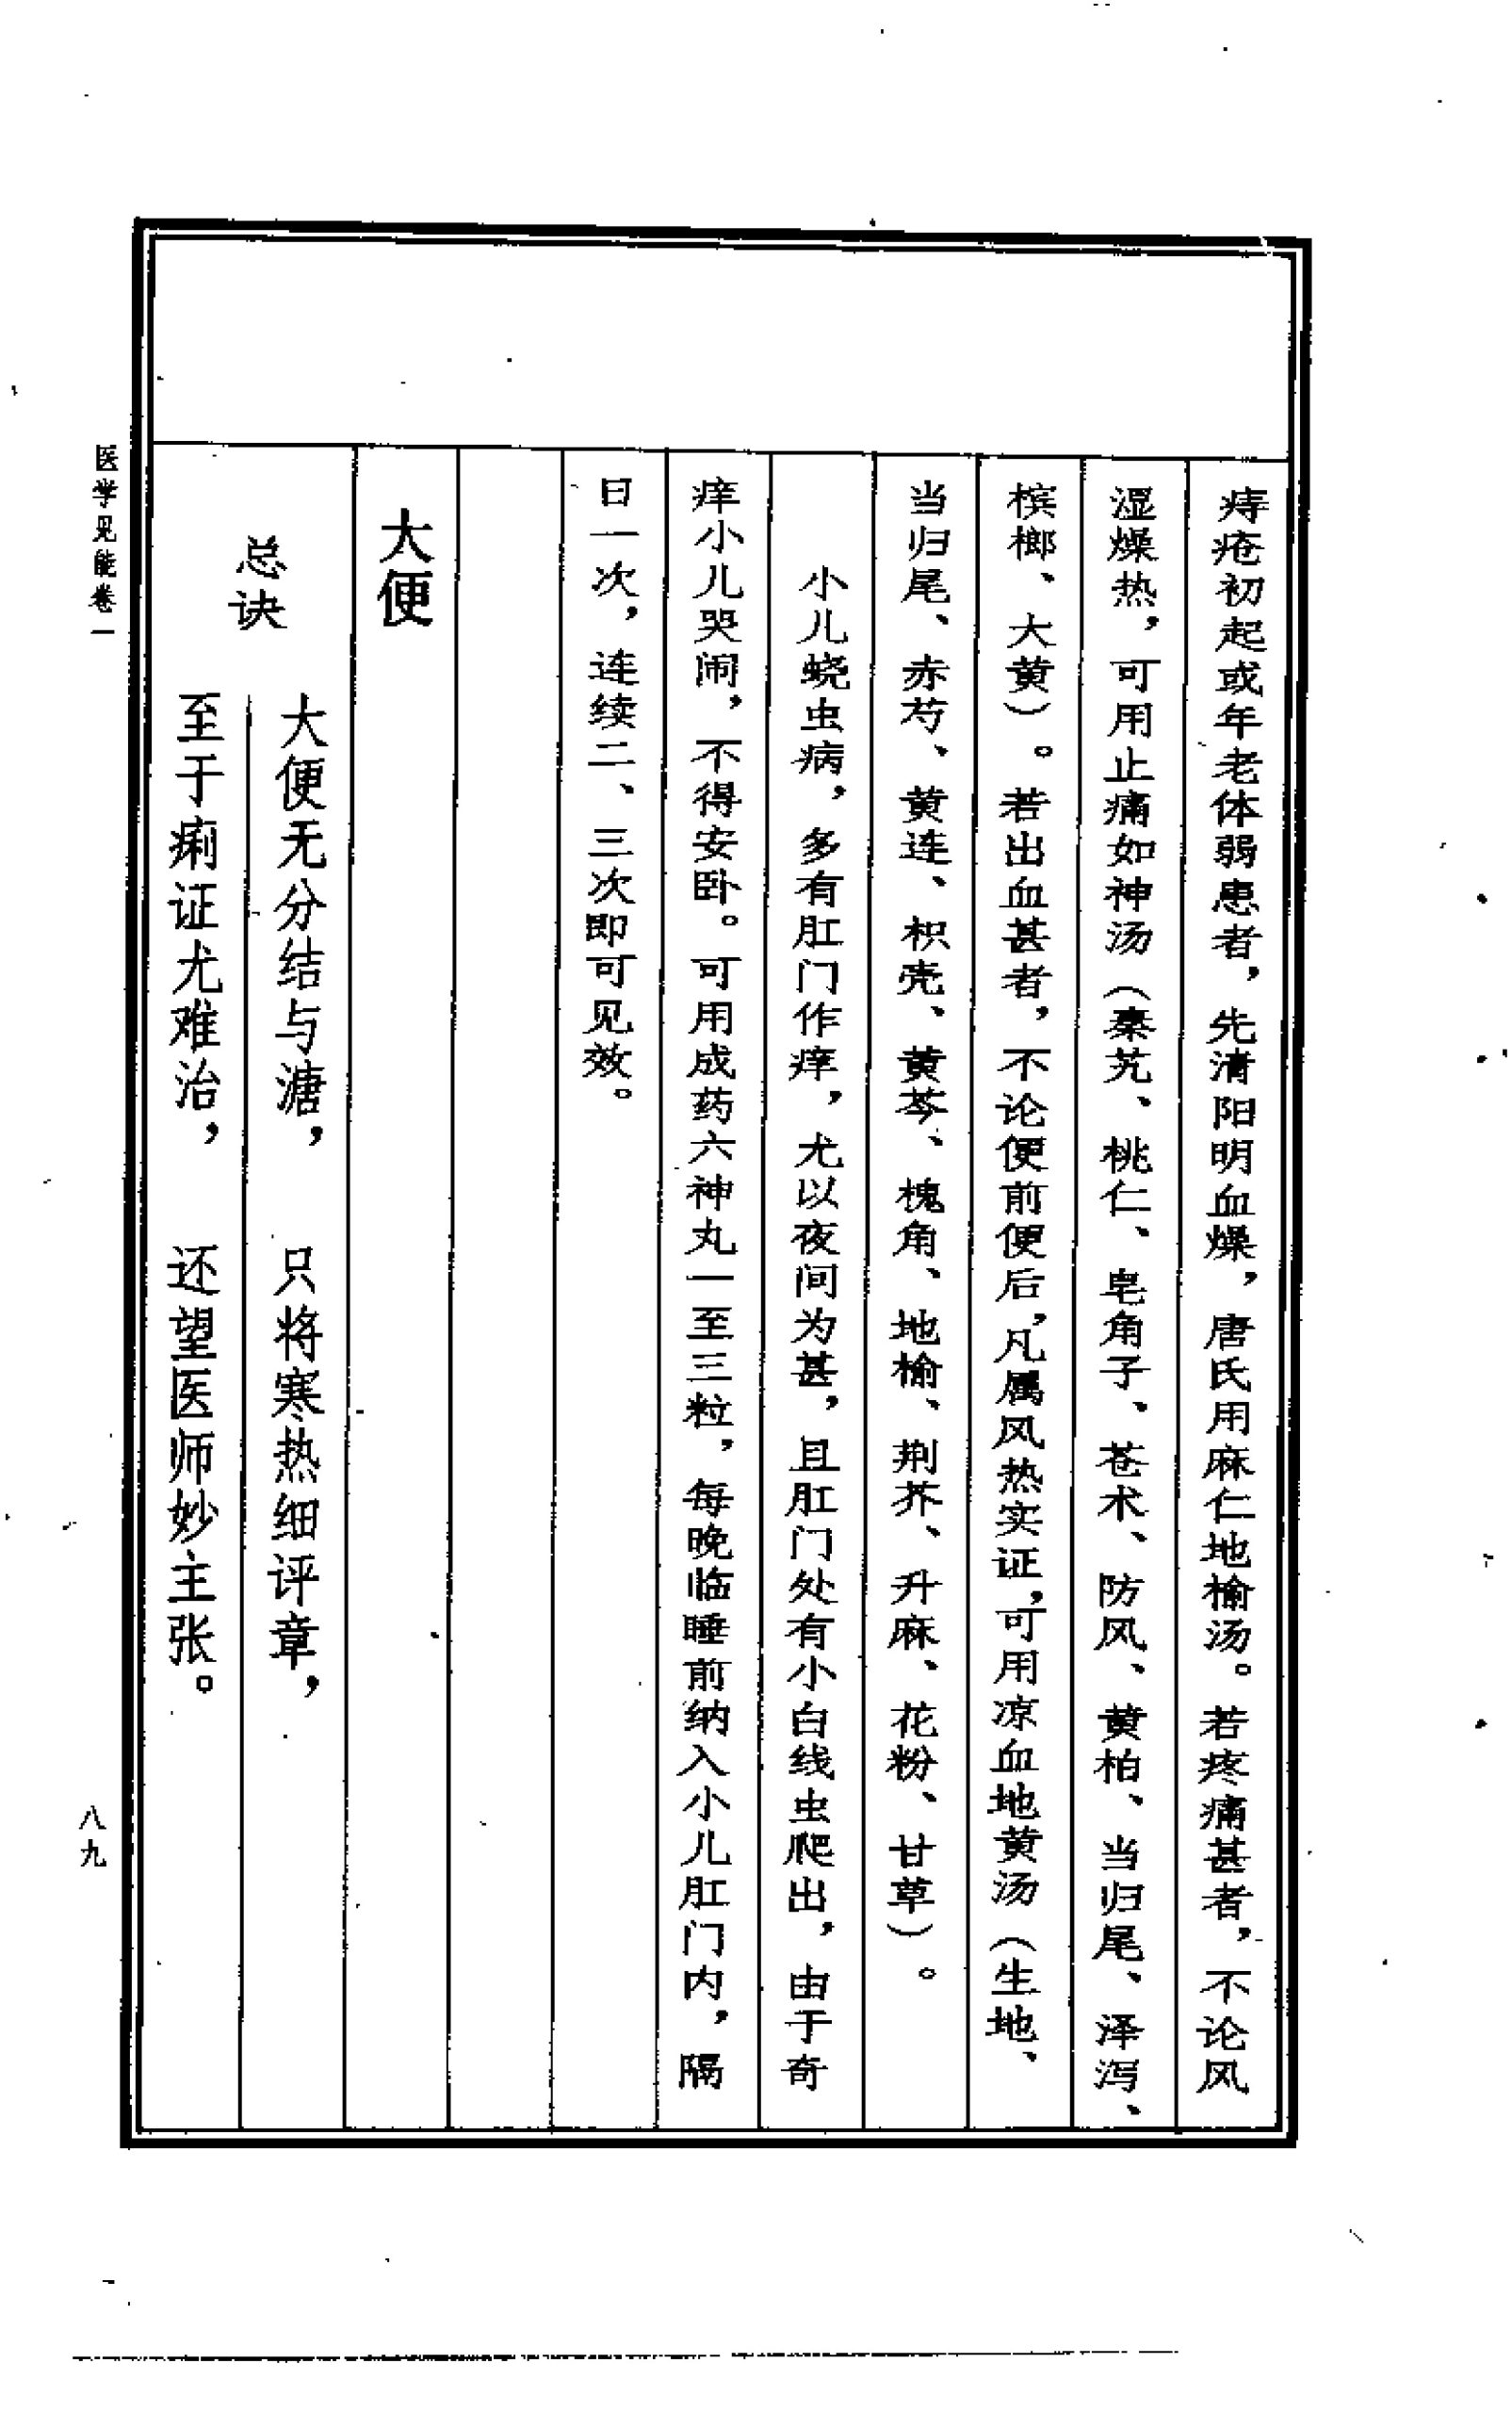 痔疮初起或年老体弱患者，先清阳明血燥，唐氏用麻仁地榆汤。若疼痛甚者，不论风
湿燥热，可用止痛如神汤（秦艽、桃仁、皂角子、苍术、防风、黄柏、当归尾、泽泻、
槟榔、大黄）。若出血甚者，不论便前便后，凡属风热实证，可用凉血地黄汤（生地、
当归尾、赤芍、黄连、枳壳、黄芩、槐角、地榆、荆芥、升麻、花粉、甘草）。
小儿蛲虫病，多有肛门作痒，尤以夜间为甚，且肛门处有小白线虫爬出，由于奇
痒小儿哭闹，不得安卧。可用成药六神丸一至三粒，每晚临睡前纳入小儿肛门内，隔
日一次，连续二、三次即可见效。
大便
总诀
大便无分结与溏，只将寒热细评章，
至于痢证尤难治，还望医师妙主张。
医学见能卷一
八九